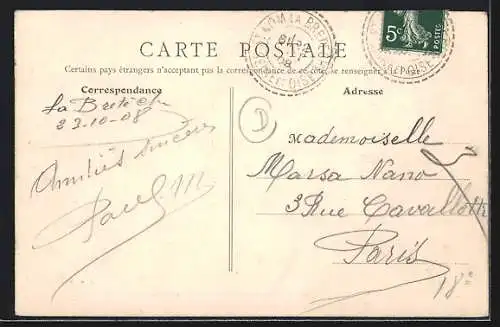 CARTE POSTALE
Certains pays étrangers n'acceptant pas la correspondance de ce côté, se renseigner à la Poste
Correspondance
Adresse
5c
La Bretèche
23-10-08
Amitiés sincères
Paul M
D
Mademoiselle
Marsa Nano
3 Rue Cavallotti
Paris
18e